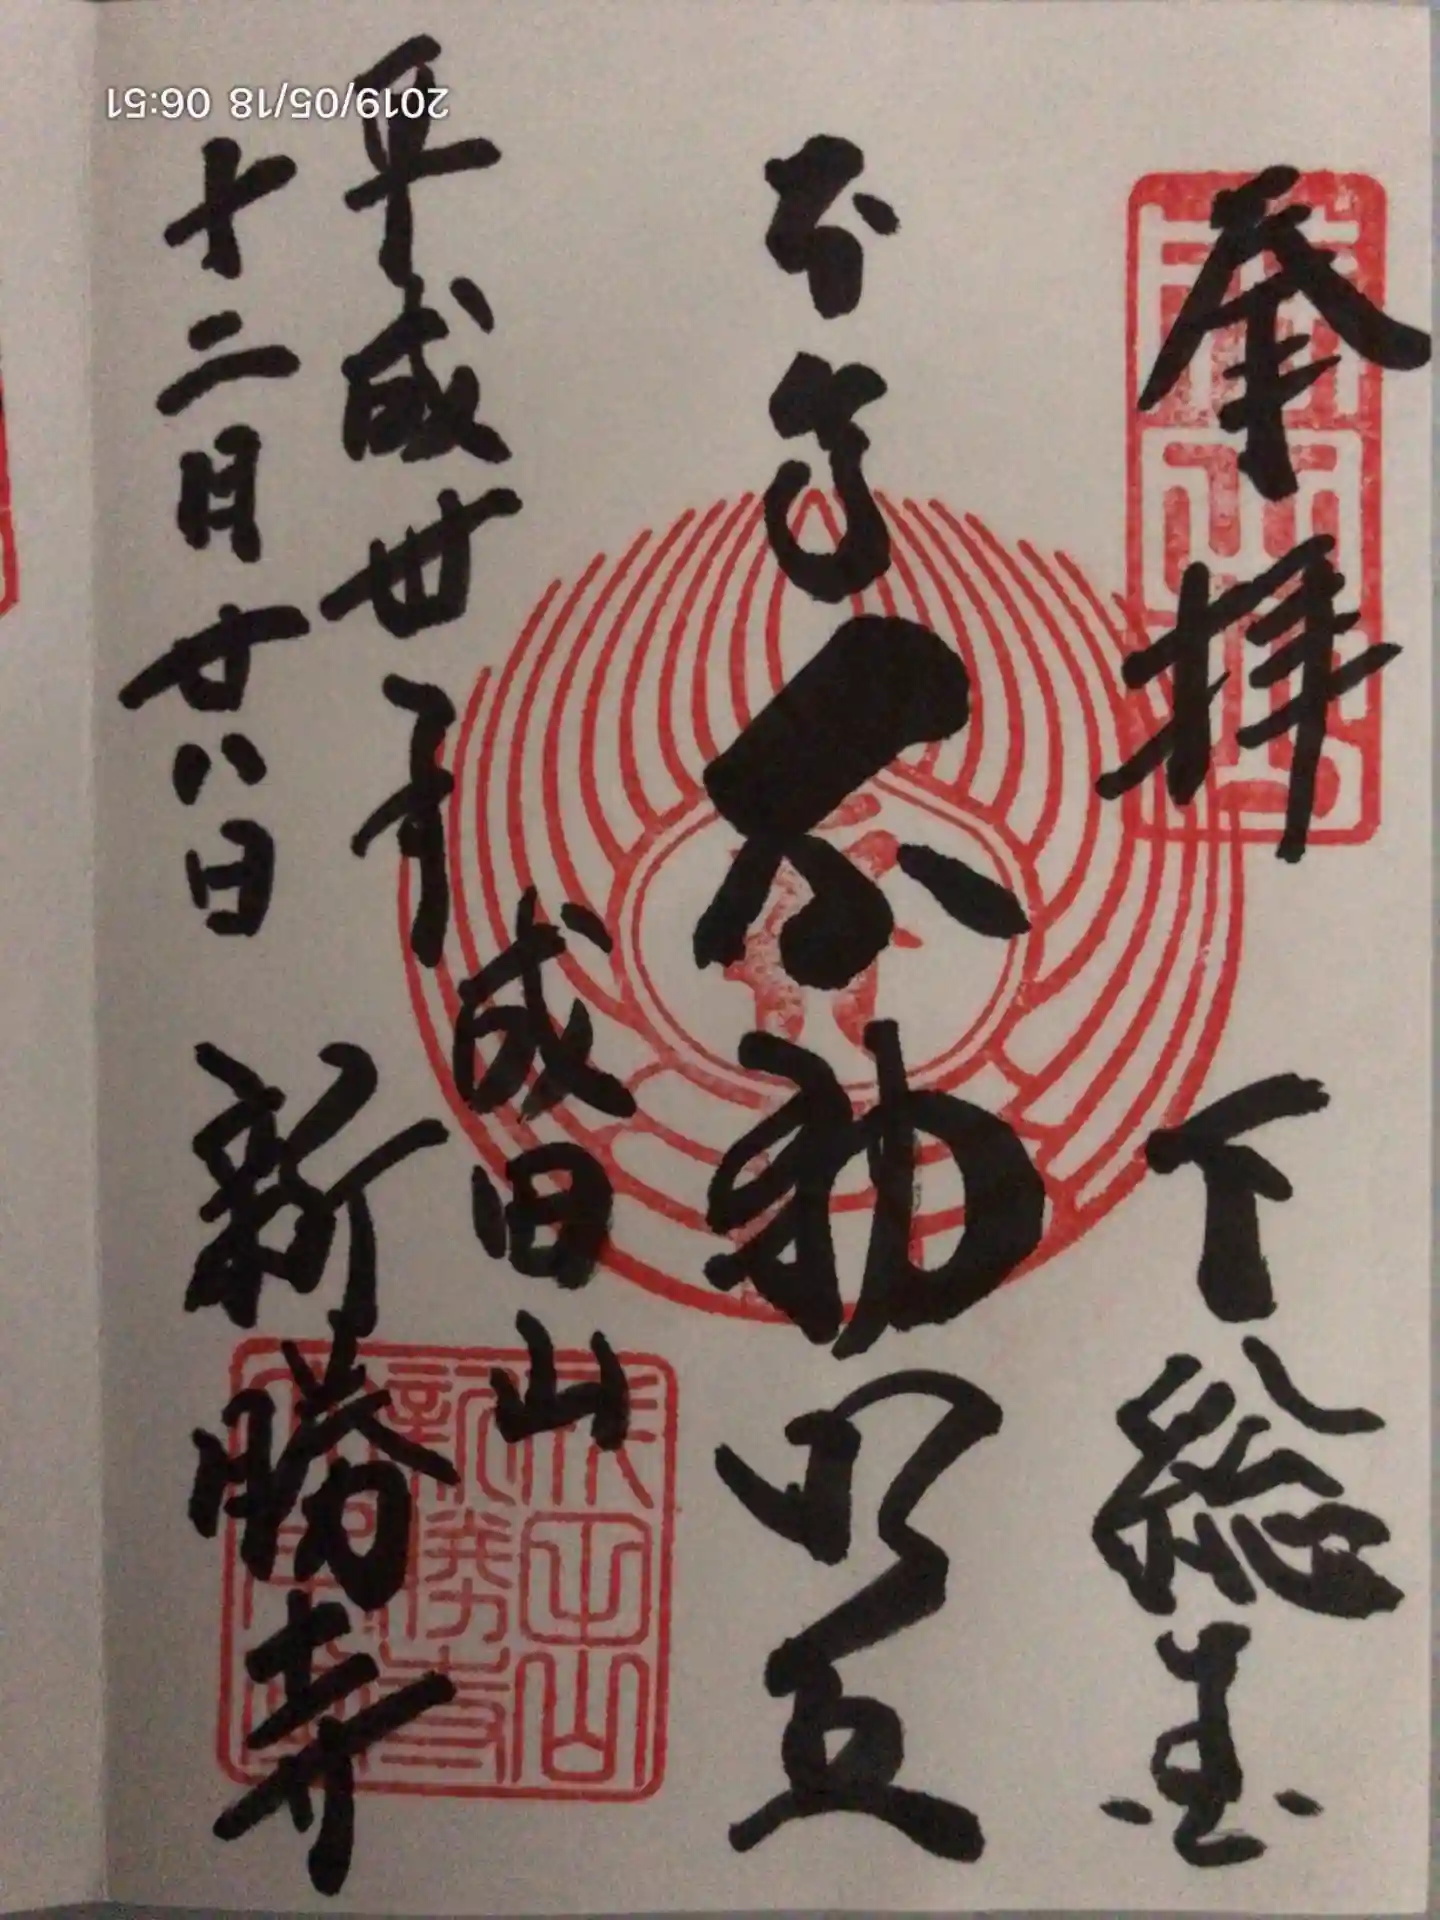 奉拝 下総国
本尊
不動明王
成田山
新勝寺
平成卅年
十二月廿八日
成田山
新勝寺
2019/05/18 06:51